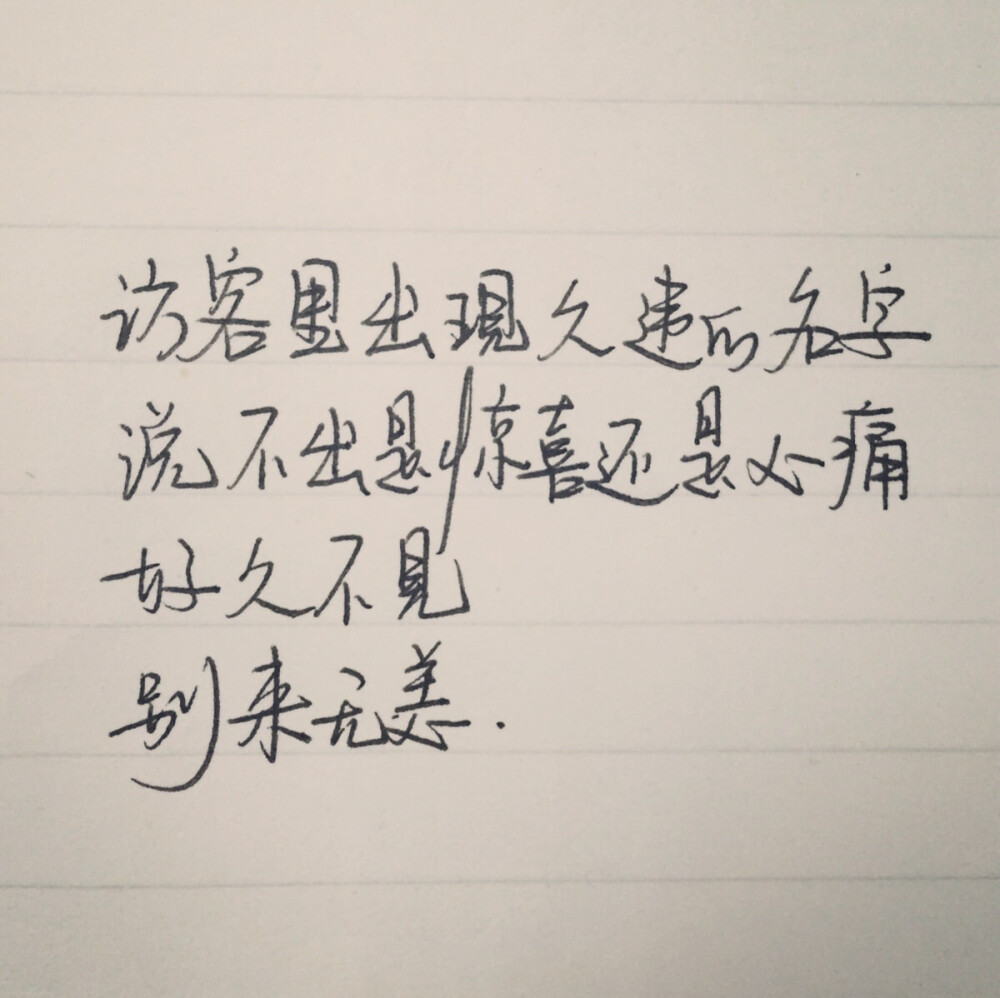 访客里出現久违的名字
说不出是惊喜还是心痛
好久不見
别来无恙.